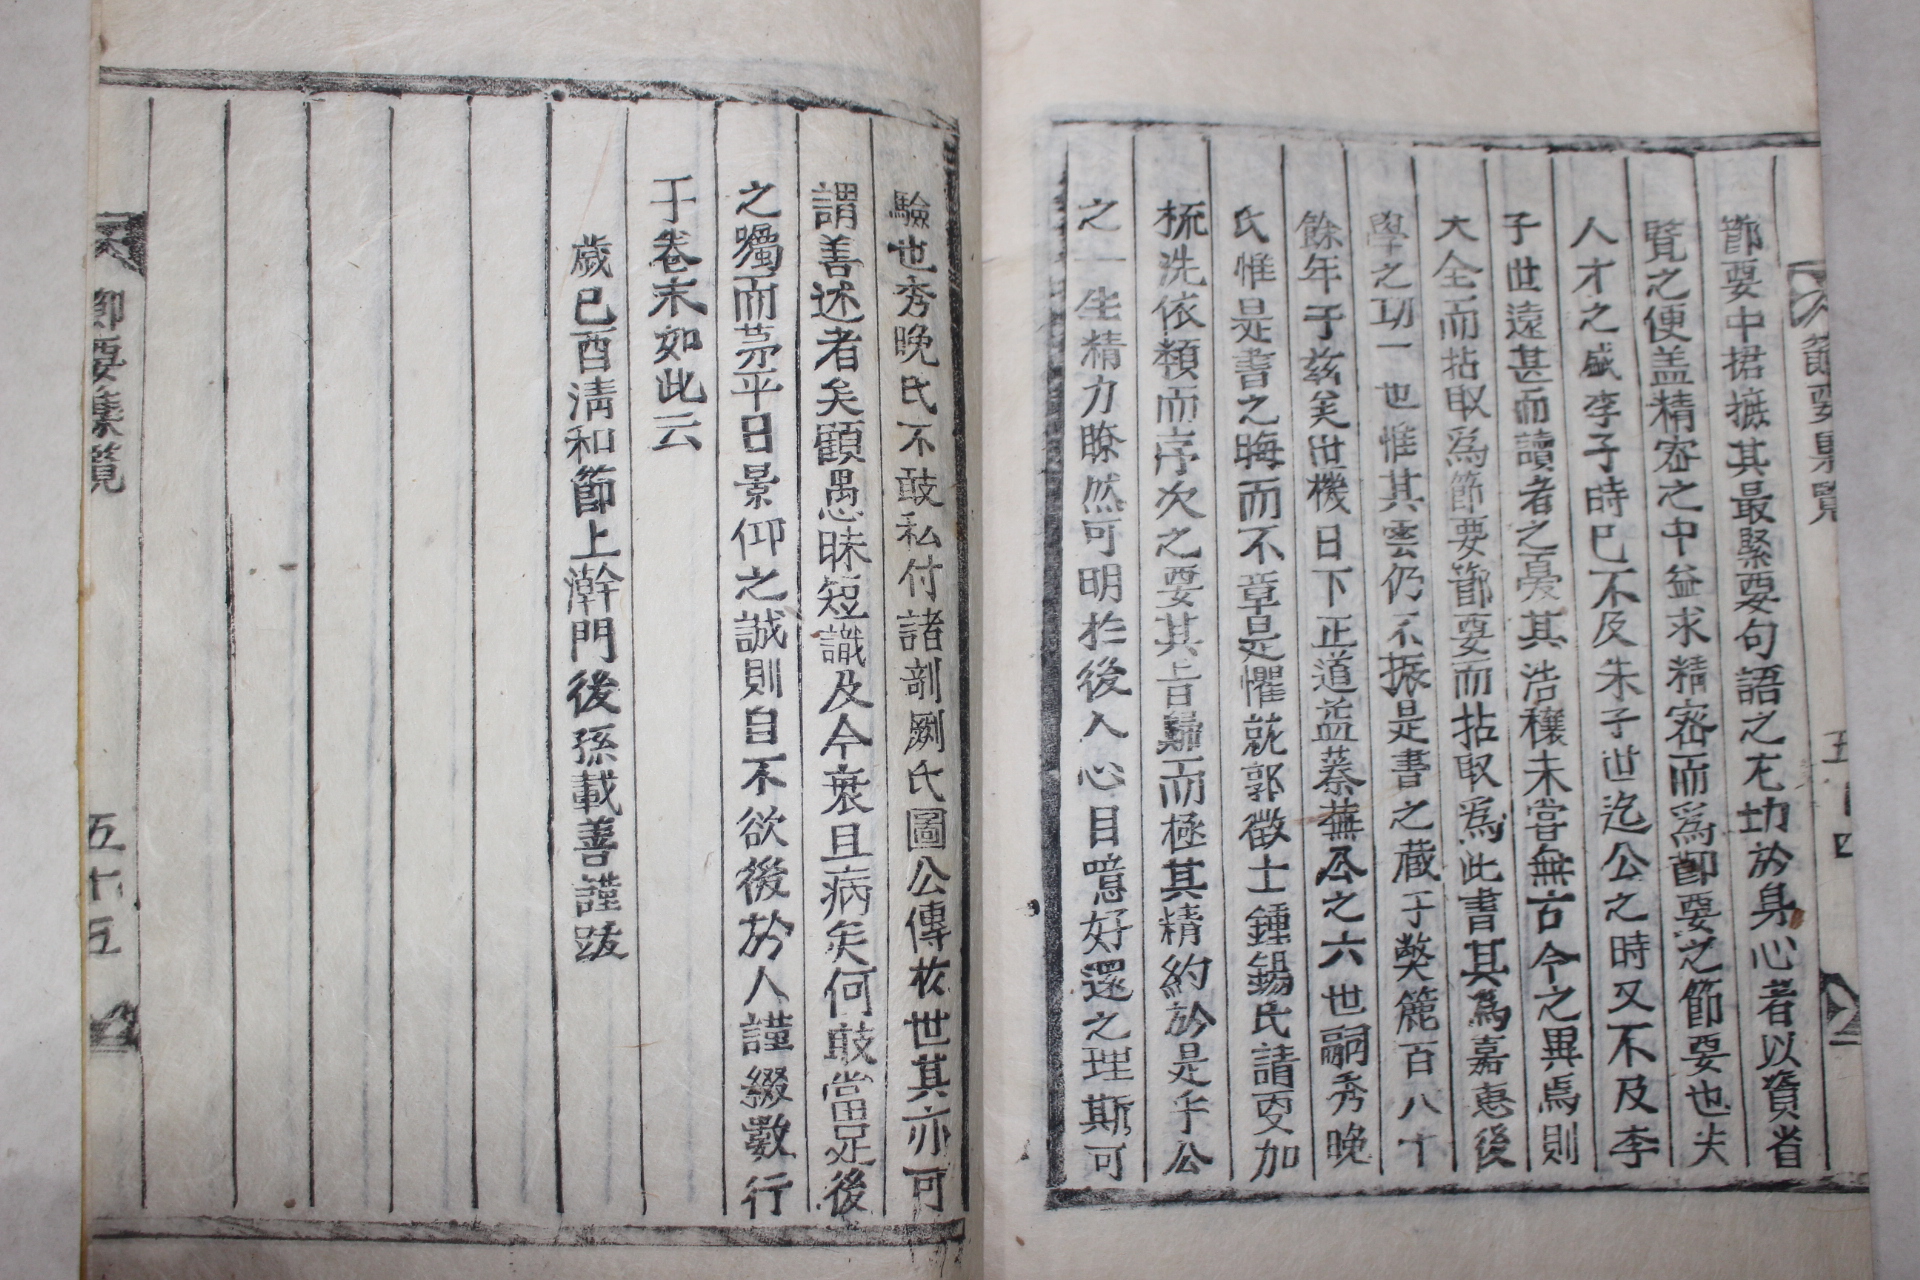 節要中捃摭其最緊要句語之尤切於身心者以資省
覽之便盖精密之中益求精密而爲節要之節要也夫
人才之盛李子時已不及朱子世迄公之時又不及李
子世遠甚而讀者之憂其浩穰未嘗無古今之異焉則
大全而拈取爲節要節要而拈取爲此書其爲嘉惠後
學之功一也惟其雲仍不振是書之藏于獘簏百八十
餘年于兹矣世機日下正道益蓁蕪公之六世嗣秀晚
氏惟是書之晦而不章是懼就郭徵士鍾錫氏請更加
梳洗依類而序次之要其旨歸而極其精約於是乎公
之一生精力瞭然可明於後人心目噫好還之理斯可
節要 覽
五 四
驗也秀晚氏不敢私付諸剞劂氏圖公傳于世其亦可
謂善述者矣顧愚昧短識及今衰且病矣何敢當足後
之囑而茅平日景仰之誠則自不欲後於人謹綴數行
于卷末如此云
歲己酉淸和節上澣門後孫載善謹跋
節要 覽
五十五